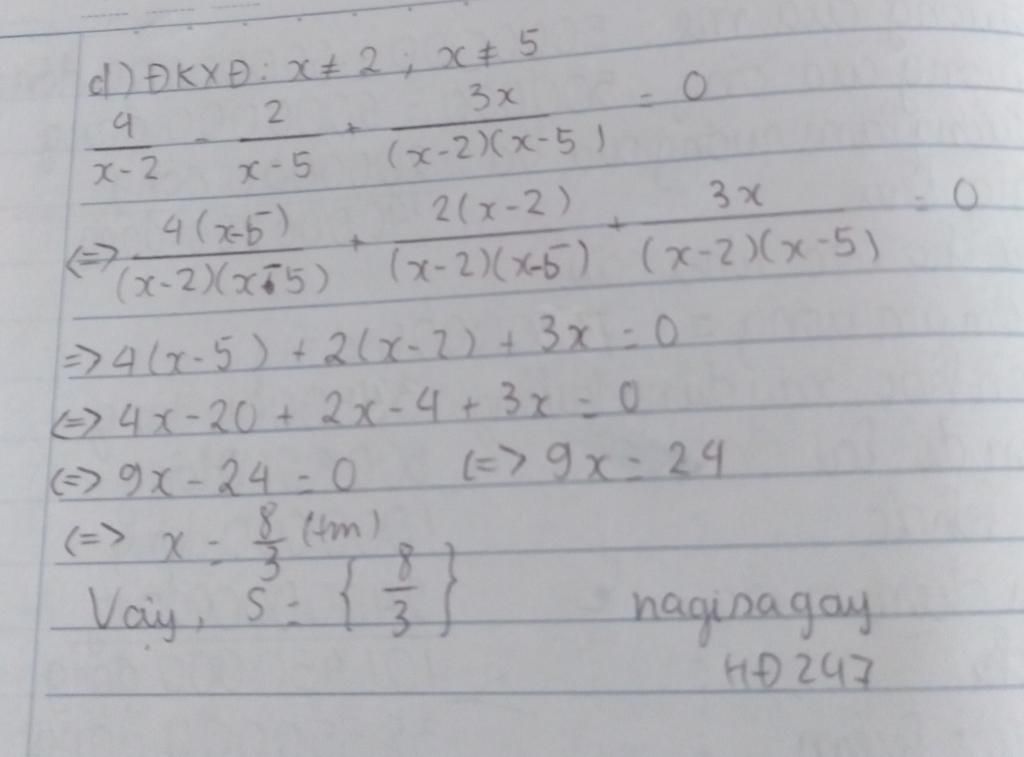 d) ĐKXĐ: x ≠ 2 ; x ≠ 5
4/(x-2) - 2/(x-5) + 3x/((x-2)(x-5)) = 0
<=> 4(x-5)/((x-2)(x-5)) + 2(x-2)/((x-2)(x-5)) + 3x/((x-2)(x-5)) = 0
=> 4(x-5) + 2(x-2) + 3x = 0
<=> 4x - 20 + 2x - 4 + 3x = 0
<=> 9x - 24 = 0 <=> 9x = 24
<=> x = 8/3 (tm)
Vậy, S = {8/3}
nagisagay
HĐ247